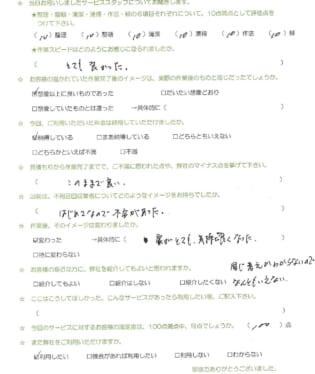 ☆ 当日お伺いしましたサービススタッフについてお聞きします。
★整理・整頓・清潔・清掃・作法・躾の6項目それぞれについて、10点満点として評価点を
つけて下さい。
(10)整理 (10)整頓 (10)清潔 (10)清掃 (10)作法 (10)躾
★作業スピードはどのようにお感じになられましたか。
( とても良かった。 )
☆ お客様の描かれていた作業完了後のイメージは、実際の作業後のものと同じだったでしょうか。
☑想像以上に良いものであった □だいたい想像どおり
□想像していたものとは違った →具体的に( )
☆ 今回、ご利用いただいた料金は納得していただけましたか。
☑納得している □まあ納得している □どちらともいえない
□どちらかといえば不満 □不満
☆ 見積もりから作業完了までで、ご不満に思われた点や、弊社のマイナス点を挙げて下さい。
( このままで良い。 )
☆ 以前は、不用品回収業者についてどのようなイメージをお持ちでしたか。
( はじめてなので不安があった。 )
☆ 作業後、そのイメージは変わりましたか。
☑変わった →具体的に( とても、気持ち良くなった。 )
□特に変わらない
☆ お客様の身近な方に、弊社を紹介してもよいと思われますか。
□紹介してもよい □紹介はしない □紹介したくない
同じ考えかわからないので
なんともいえない。
☆ ここはこうしてほしかった、こんなサービスがあったら利用したい等、ご記入下さい。
( )
☆ 今回のサービスに対するお客様の満足度は、100点満点中、何点でしょうか。 (100)点
☆ また弊社をご利用いただけますか。
☑利用したい □機会があれば利用したい □利用しない □わからない
ご協力ありがとうございました。